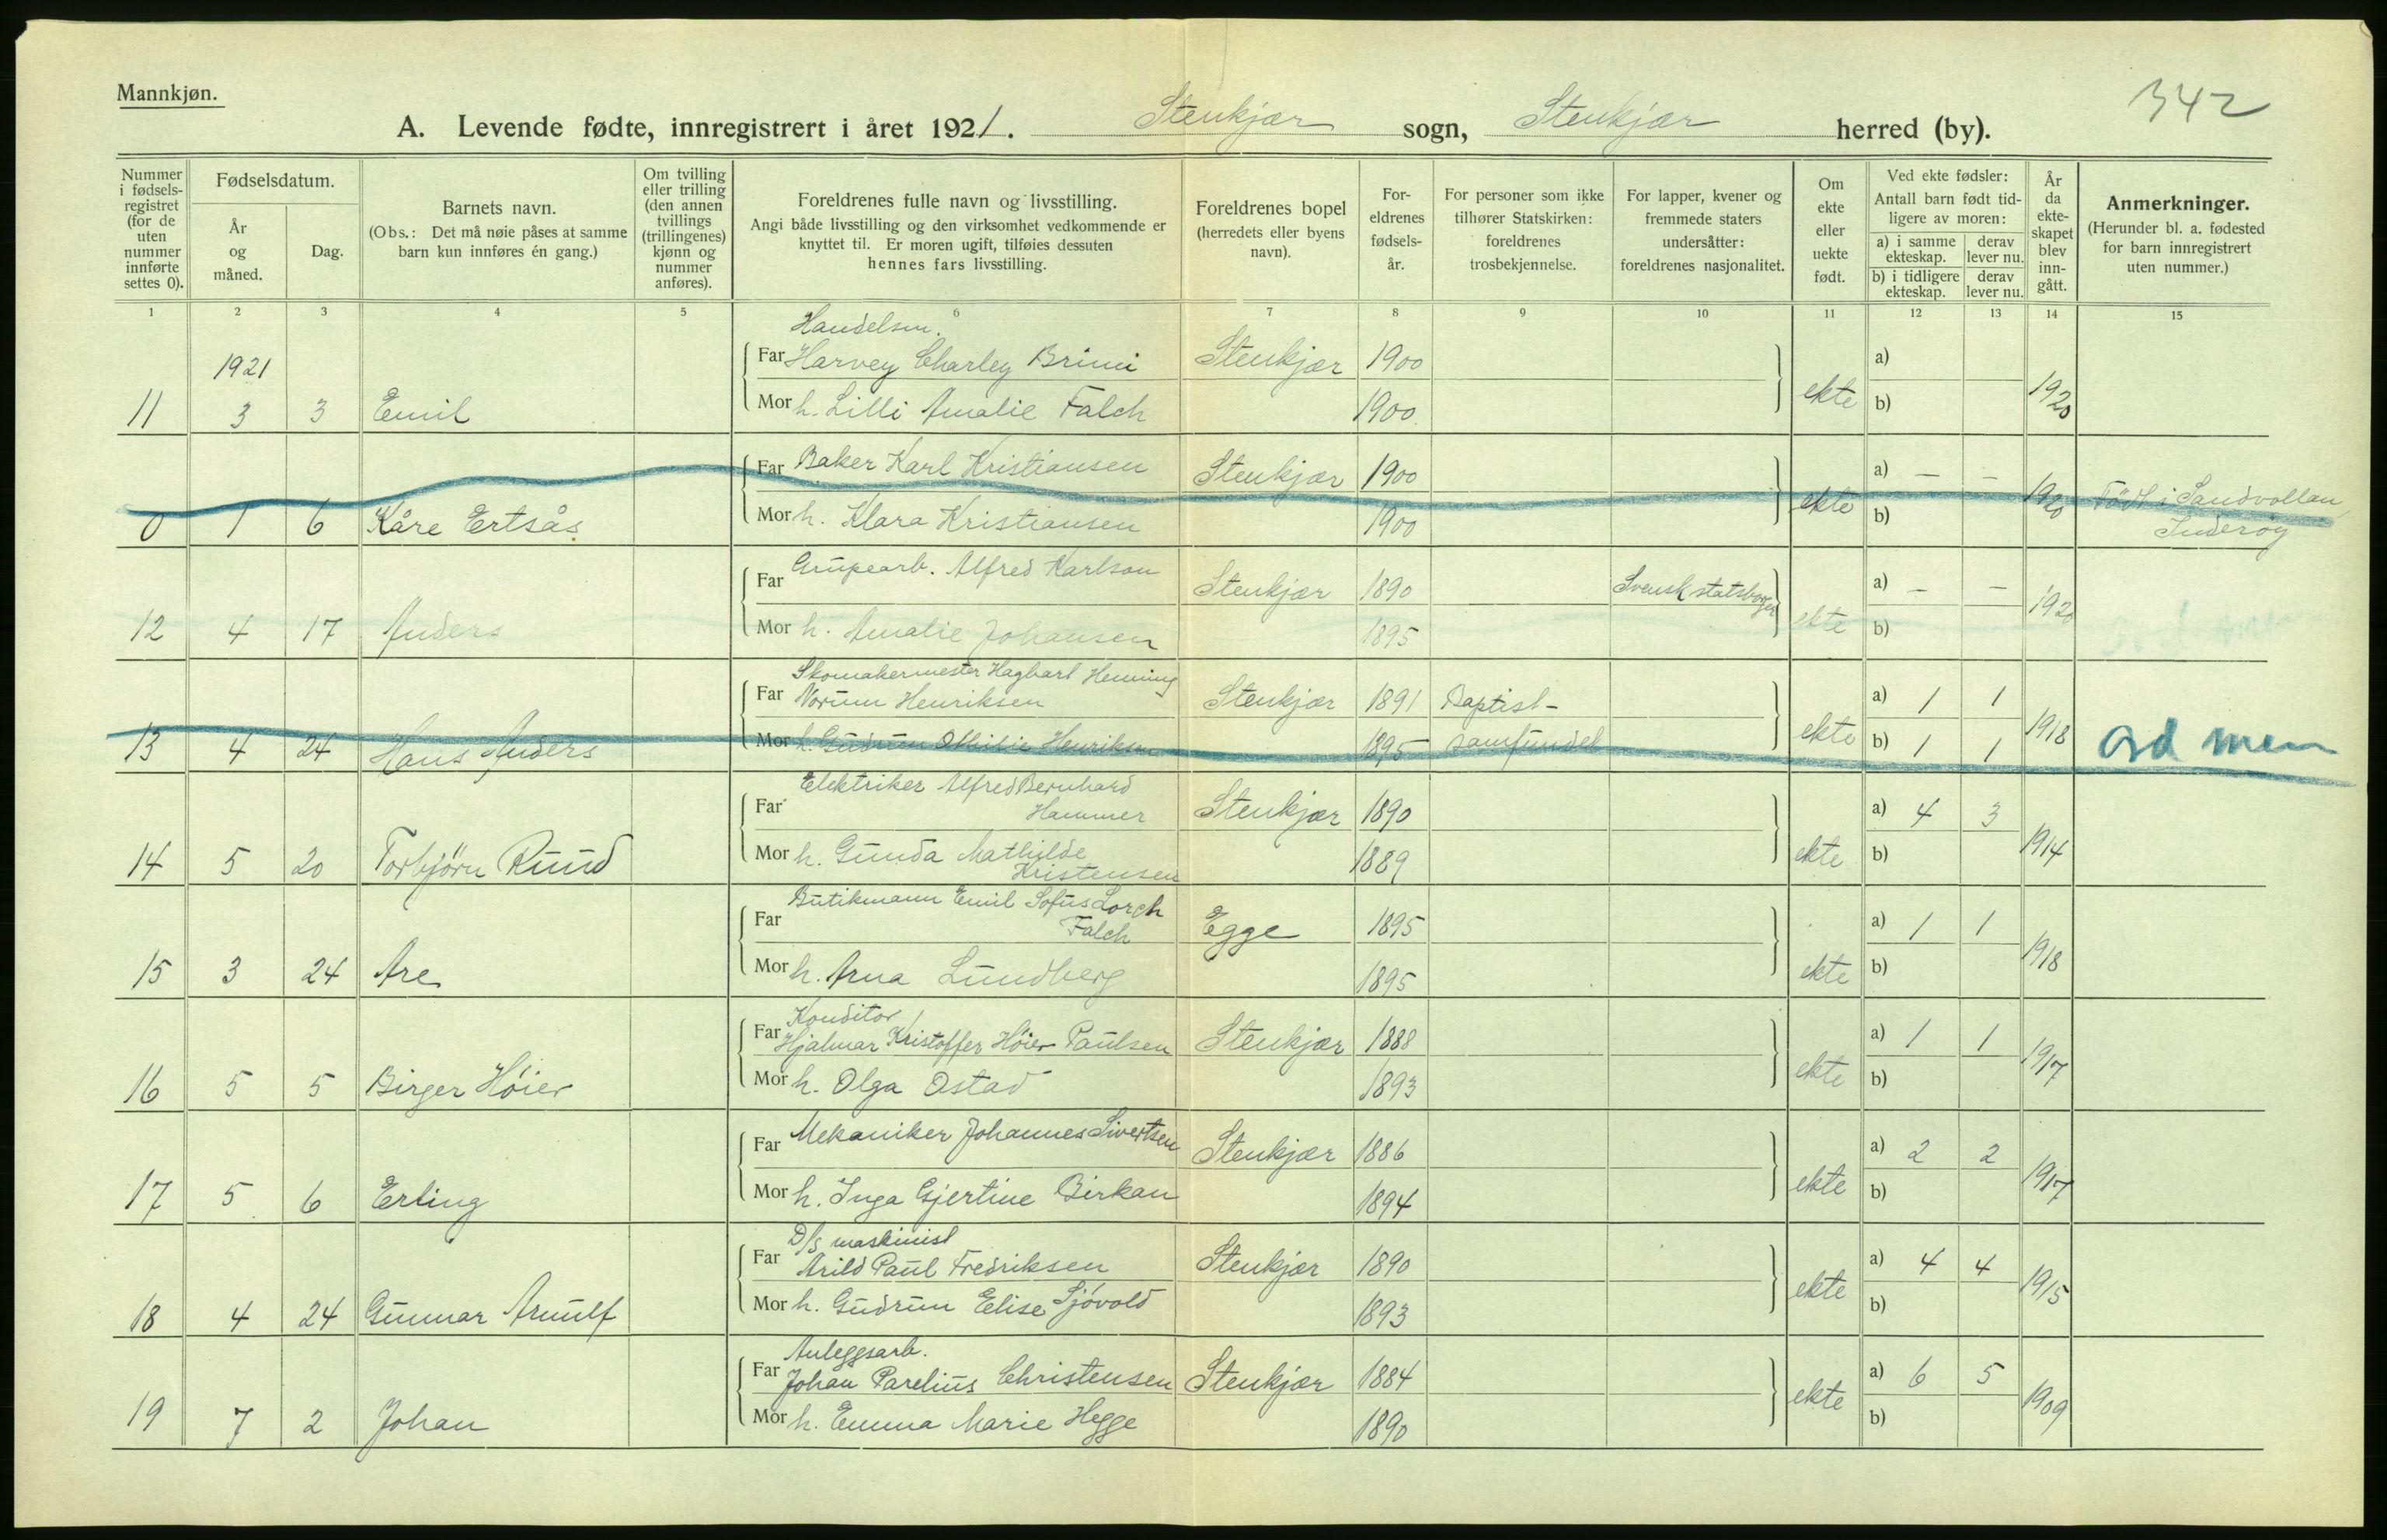 Mannkjøn.
342
A. Levende fødte, innregistrert i året 1921. Stenkjær sogn, Stenkjær herred (by).
Nummer i fødsels-registret (for de uten nummer innførte settes 0).
Fødselsdatum.
År og måned.
Dag.
Barnets navn.
(Obs.: Det må nøie påses at samme barn kun innføres én gang.)
Om tvilling eller trilling (den annen tvillings (trillingenes) kjønn og nummer anføres).
Foreldrenes fulle navn og livsstilling.
Angi både livsstilling og den virksomhet vedkommende er knyttet til. Er moren ugift, tilføies dessuten hennes fars livsstilling.
Foreldrenes bopel (herredets eller byens navn).
For-eldrenes fødsels-år.
For personer som ikke tilhører Statskirken: foreldrenes trosbekjennelse.
For lapper, kvener og fremmede staters undersåtter: foreldrenes nasjonalitet.
Om ekte eller uekte født.
Ved ekte fødsler: Antall barn født tid-ligere av moren:
a) i samme ekteskap. derav lever nu.
b) i tidligere ekteskap. derav lever nu.
År da ekte-skapet blev inn-gått.
Anmerkninger.
(Herunder bl. a. fødested for barn innregistrert uten nummer.)
1 2 3 4 5 6 7 8 9 10 11 12 13 14 15
Handelsm.
1921 Far Harvey Charley Brimi Stenkjær 1900 a)
11 3 3 Emil Mor h. Lilli Amalie Falch 1900 ekte b) 1920
Far Baker Karl Kristiansen Stenkjær 1900 a) - -
0 1 6 Kåre Ertsås Mor h. Klara Kristiansen 1900 ekte b) 1920 Född i Sandvollan, Inderøy
Far Grupearb. Alfred Karlson Stenkjær 1890 Svensk statsborger a) - -
12 4 17 Anders Mor h. Amalie Johansen 1895 ekte b) 1920
Skomakermester Hagbart Henning
Far Norum Henriksen Stenkjær 1891 Baptist- a) 1 1
13 4 24 Hans Anders Mor h. Gudrun Othilie Henriksen 1895 samfundet ekte b) 1 1 1918 Gd men
Elektriker Alfred Bernhard
Far Hammer Stenkjær 1890 a) 4 3
14 5 20 Torbjörn Ruud Mor h. Gunda Mathilde Kristensen 1889 ekte b) 1914
Butikmann Emil Sofus Lorch
Far Falch Egge 1895 a) 1 1
15 3 24 Are Mor h. Arna Lundberg 1895 ekte b) 1918
Konditor
Far Hjalmar Kristoffer Höier Paulsen Stenkjær 1888 a) 1 1
16 5 5 Birger Höier Mor h. Olga Ostad 1893 ekte b) 1917
Far Mekaniker Johannes Sivertsen Stenkjær 1886 a) 2 2
17 5 6 Erling Mor h. Inga Gjertine Birkan 1894 ekte b) 1917
D/S maskinist
Far Arild Paul Fredriksen Stenkjær 1890 a) 4 4
18 4 24 Gunnar Arnulf Mor h. Gudrun Elise Sjövold 1893 ekte b) 1915
Anleggsarb.
Far Johan Parelius Christensen Stenkjær 1884 a) 6 5
19 7 2 Johan Mor h. Emma Marie Hegge 1890 ekte b) 1909